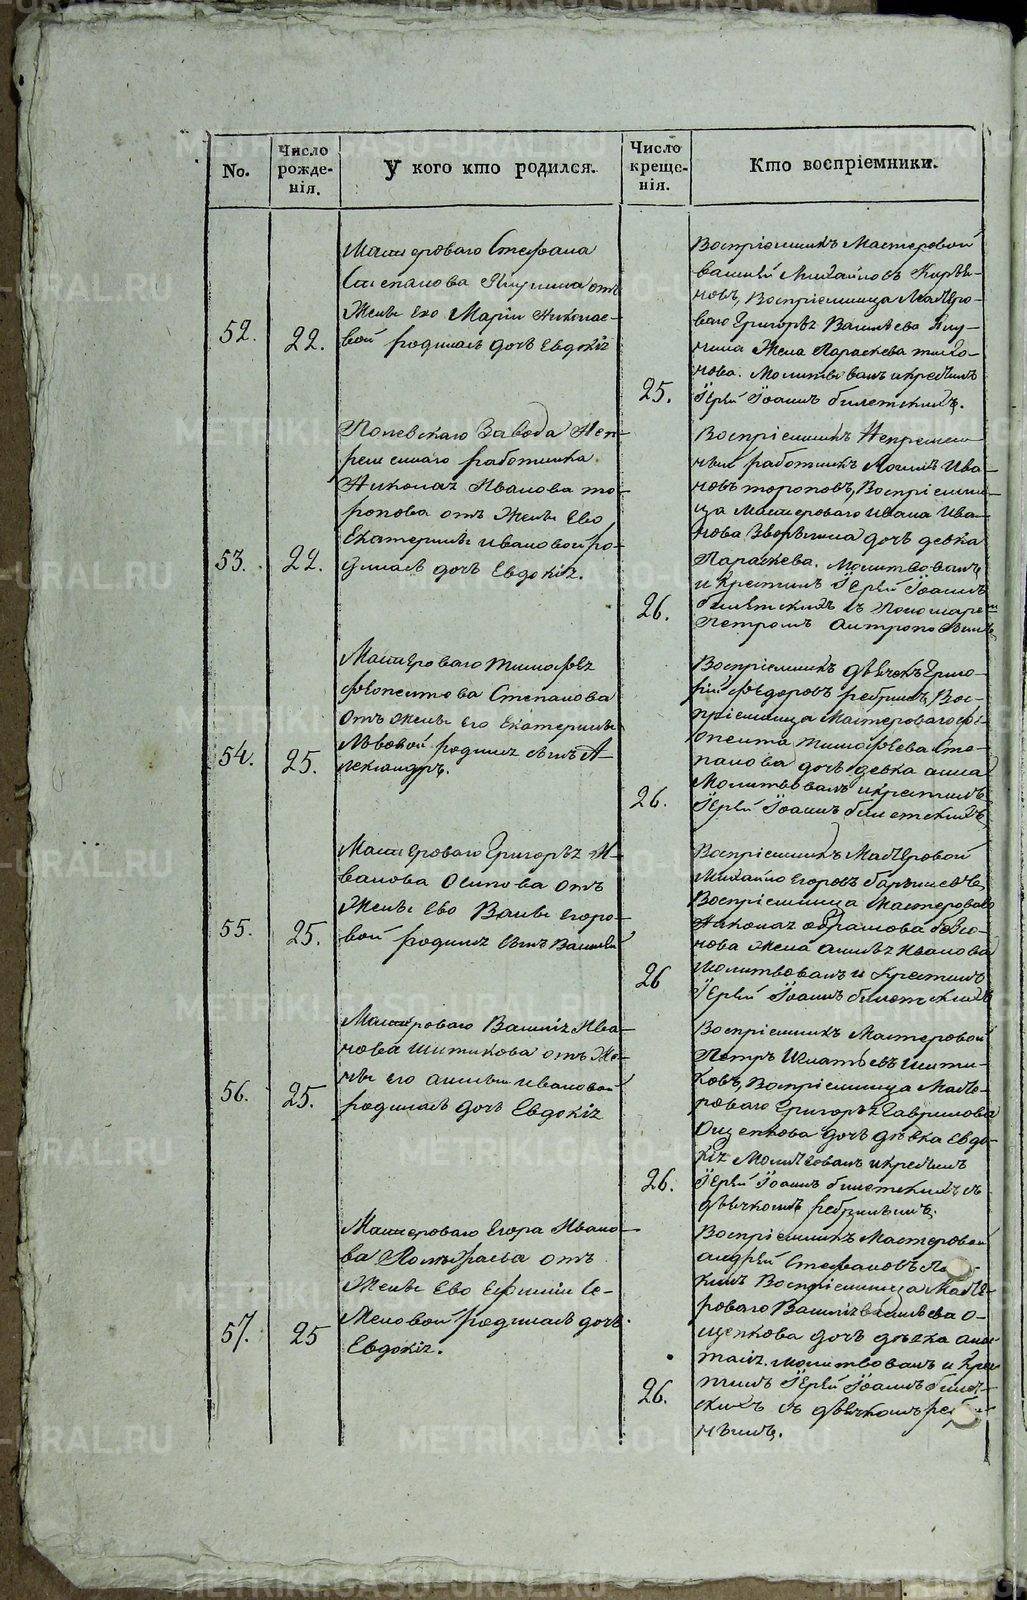 No.
Число рожде-нія.
У кого кто родился.
Число креще-нія.
Кто воспріемники.
52.
22.
Мастероваго Стефана
Степанова отъ
Жены Его Маріи Николае-
вой родилась дочь Евдокія
25.
Воспріемникъ Мастеровой
Михайловъ
Воспріемница Мастеро-
ваго Григорья Васильева
Жена Параскева
Молитвовалъ и крестилъ
Іерей Іоаннъ Билетскихъ.
53.
22.
Полевскаго Завода Неп-
ременнаго работника
Николая Иванова То-
ропова отъ Жены Ево
Екатерины Ивановой ро-
дилась дочь Евдокія.
26.
Воспріемникъ Непремен-
ный работникъ Ива-
новъ Тороповъ, Воспріемни-
ца Мастероваго Ивана Ива-
нова дочь девка
Параскева. Молитвовалъ
и Крестилъ Іерей Іоаннъ
Билетскихъ съ Пономаремъ
Петромъ Антроповымъ
54.
25.
Мастероваго Тимофея
Феопентова Степанова
отъ Жены Его Екатерины
Львовой родился сынъ А-
лександръ.
26.
Воспріемникъ дьячекъ Григо-
рій Федоровъ Вос-
пріемница Мастероваго Фе-
опента Тимофеева Сте-
панова дочь девка Анна
Молитвовалъ и крестилъ
Іерей Іоаннъ Билетскихъ
55.
25.
Мастероваго Григорья И-
ванова Осипова отъ
Жены Ево Егоро-
вой родился сынъ Василей
26
Воспріемникъ Мастеровой
Михайло Егоровъ
Воспріемница Мастероваго
Николая
Жена Ивановa
Молитвовалъ и Крестилъ
Іерей Іоаннъ Билетскихъ
56.
25.
Мастероваго Василія Ива-
нова Шитикова отъ Же-
ны его Анны Ивановой
родилась дочь Евдокія
26.
Воспріемникъ Мастеровой
Петръ Игнатьевъ Шити-
ковъ, Воспріемница Масте-
роваго Григорья Гаврилова
Ощепкова дочь девка Евдо-
кія Молитвовалъ и крестилъ
Іерей Іоаннъ Билетскихъ съ
дьячкомъ
57.
25
Мастероваго Егора Ивано-
ва отъ
Жены Ево Ефиміи Се-
меновой родилась дочь
Евдокія.
26.
Воспріемникъ Мастеровой
Андрей Стефановъ
Воспріемница Масте-
роваго Василія Васильева О-
щепкова дочь девка Анас-
тасія. Молитвовалъ и Крес-
тилъ Іерей Іоаннъ Билет-
скихъ съ дьячкомъ
METRIKI.GASO-URAL.RU